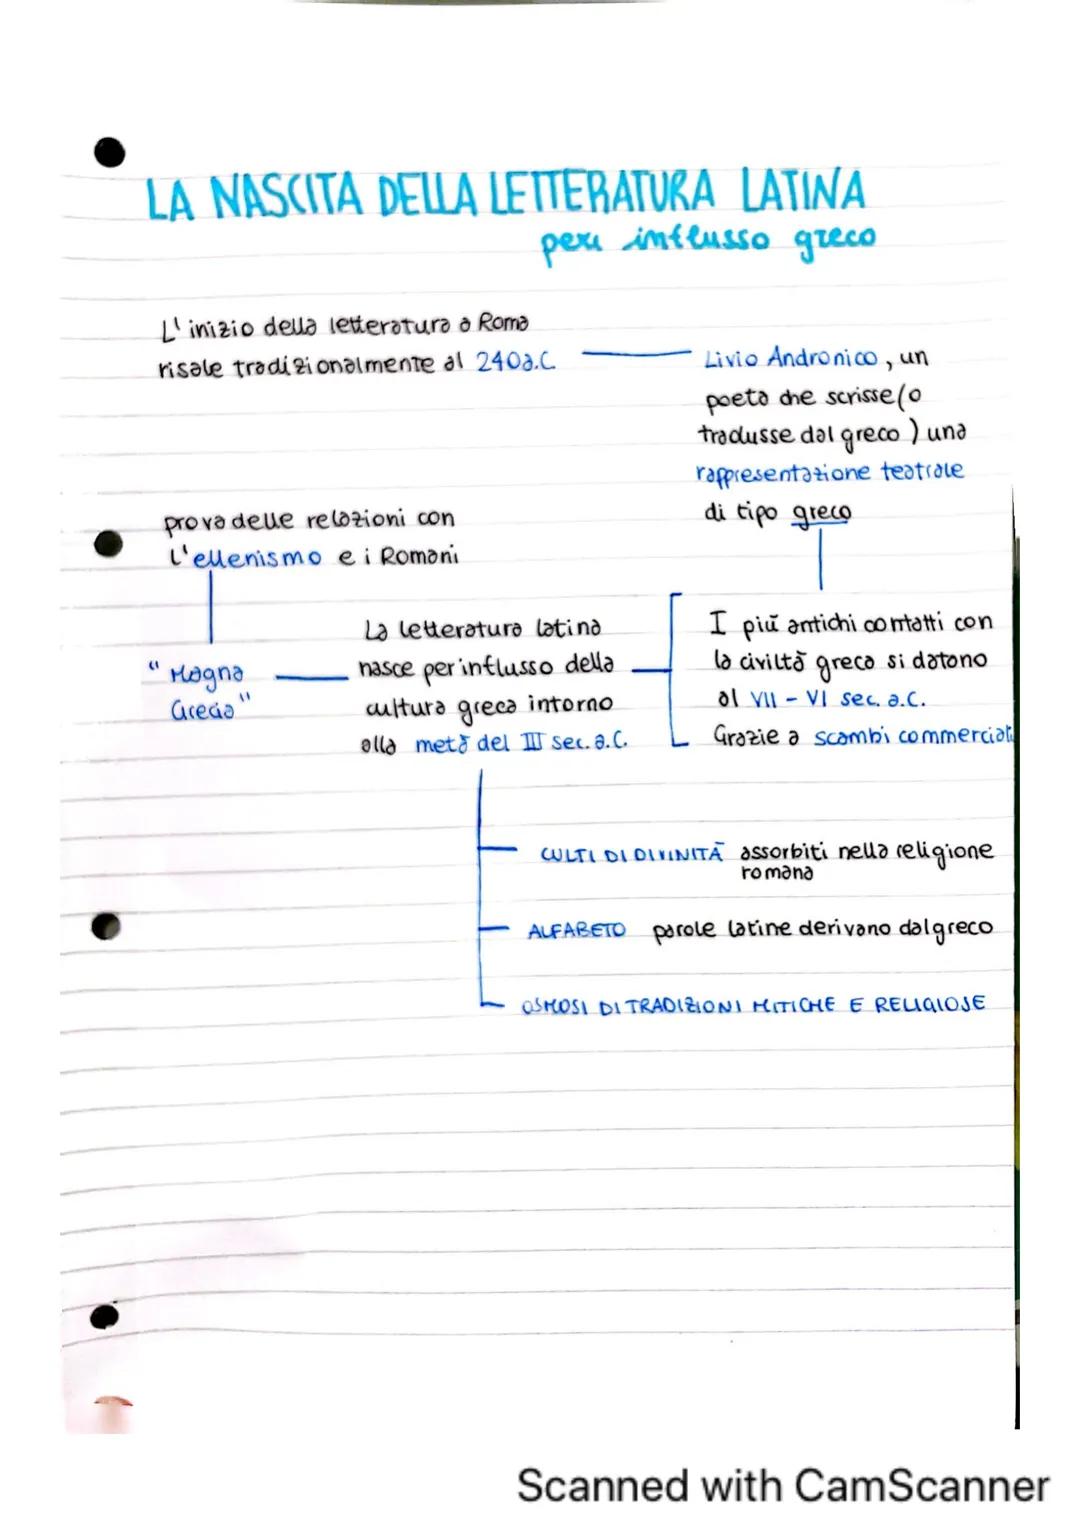 LA NASCITA DELLA LETTERATURA LATINA
per influsso greco
L'inizio della letteratura a Roma
risale tradizionalmente al 240 a.C.
Livio Andronico, un
poeta che scrisse (o
tradusse dal greco) una
rappresentazione teatrale
di tipo greco
prova delle relazioni con
l'ellenismo e i Romani
"Magna
Grecia"
La letteratura latina
nasce per influsso della
cultura greca intorno
alla metà del III sec. a.C.
I più antichi contatti con
la civiltà greca si datano
al VII - VI sec. a.C.
Grazie a scambi commerciali
CULTI DI DIVINITÀ assorbiti nella religione
romana
ALFABETO parole latine derivano dal greco
OSMOSI DI TRADIZIONI MITICHE E RELIGIOSE
Scanned with CamScanner